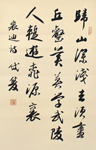 歸山深淺去須盡
丘壑美莫學武陵
人暫遊桃源裏
裴迪詩